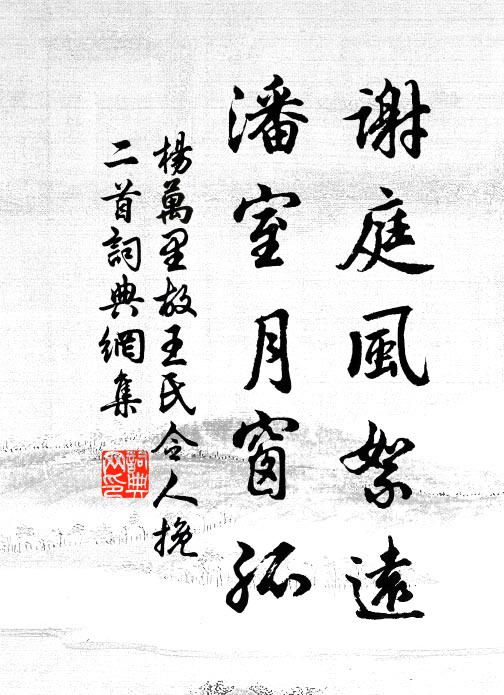 謝庭風絮遠
潘室月窗孤
楊萬里故王氏令人挽
二首詞典網集
詞典
网印